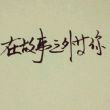 在故事之外等你